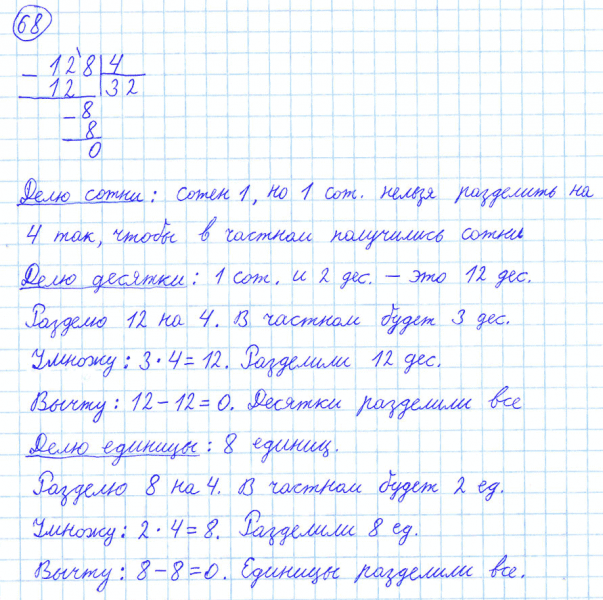 68
- 12'8 | 4
12 | 32
- 8
8
0
Делю сотни: сотен 1, но 1 сот. нельзя разделить на
4 так, чтобы в частном получились сотни
Делю десятки: 1 сот. и 2 дес. — это 12 дес.
Разделю 12 на 4. В частном будет 3 дес.
Умножу: 3 · 4 = 12. Разделили 12 дес.
Вычту: 12 - 12 = 0. Десятки разделили все
Делю единицы: 8 единиц.
Разделю 8 на 4. В частном будет 2 ед.
Умножу: 2 · 4 = 8. Разделили 8 ед.
Вычту: 8 - 8 = 0. Единицы разделили все.